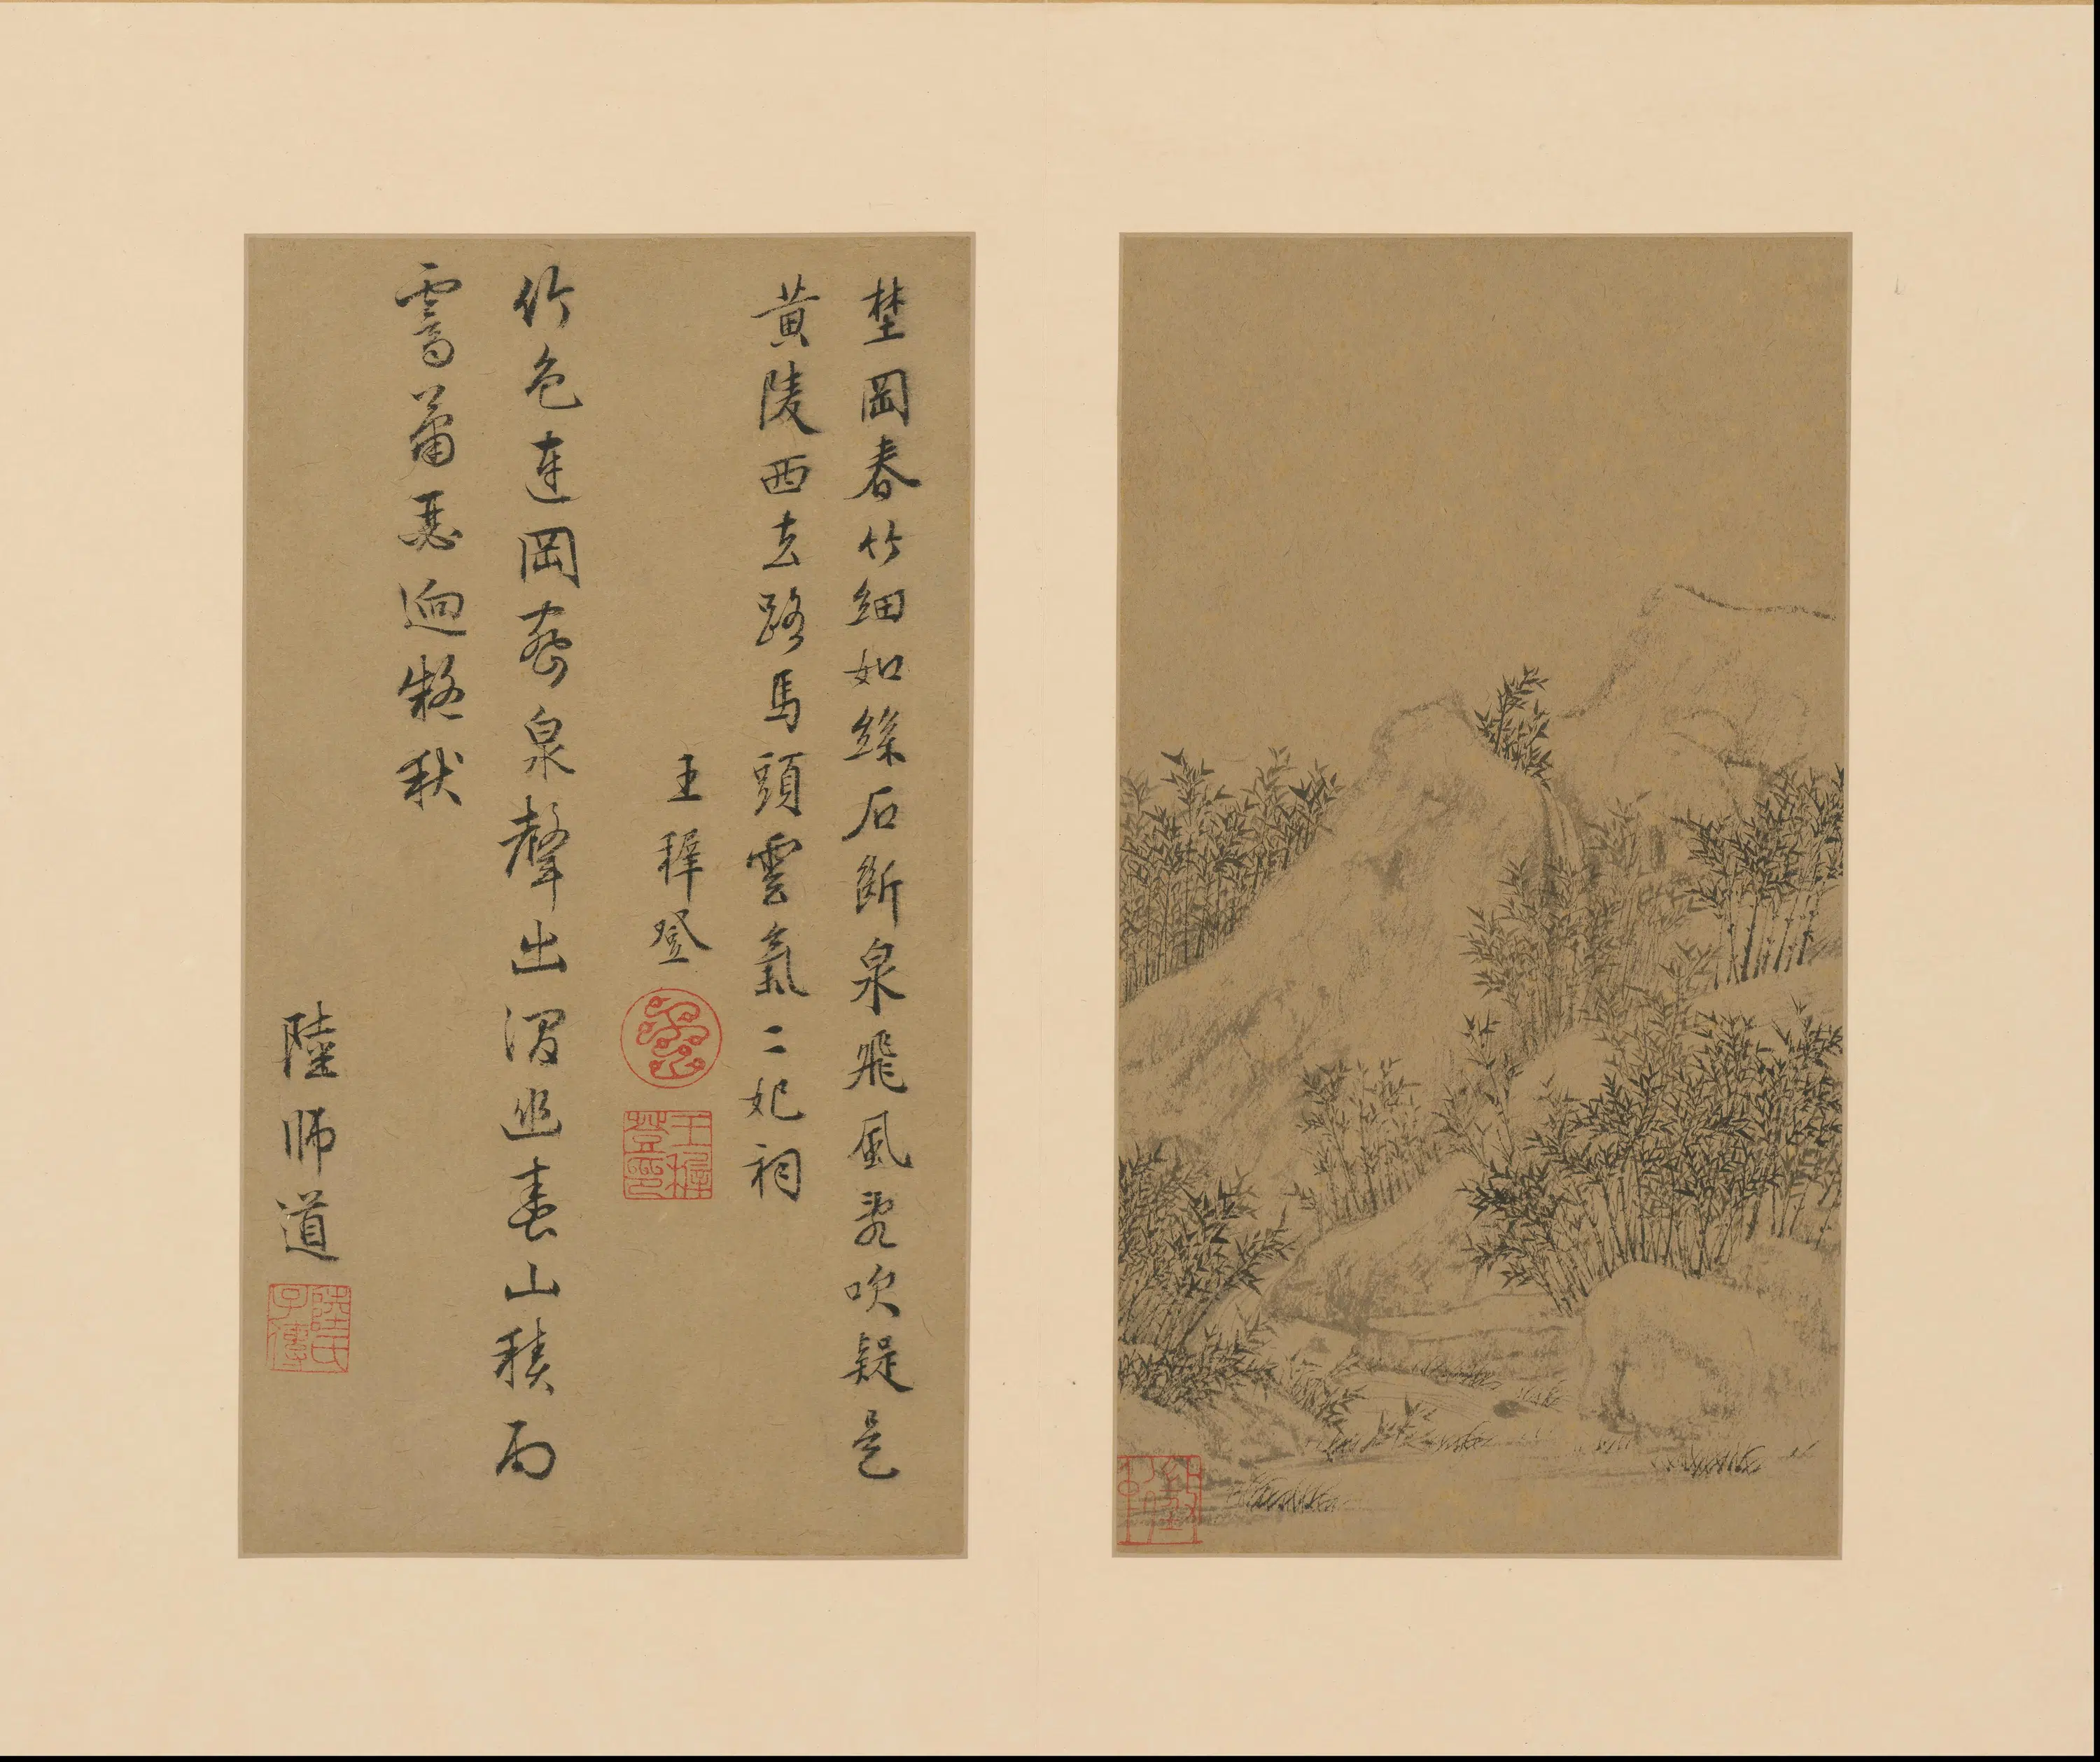 埜岡春竹細如絲石斷泉飛風亂吹疑是
黃陵西去路馬頭雲氣二妃祠
王穉登
王穉登印
竹色連岡密泉聲出澗幽春山積雨
霽蕭瑟迥凝秋
陸師道
陸氏子傳